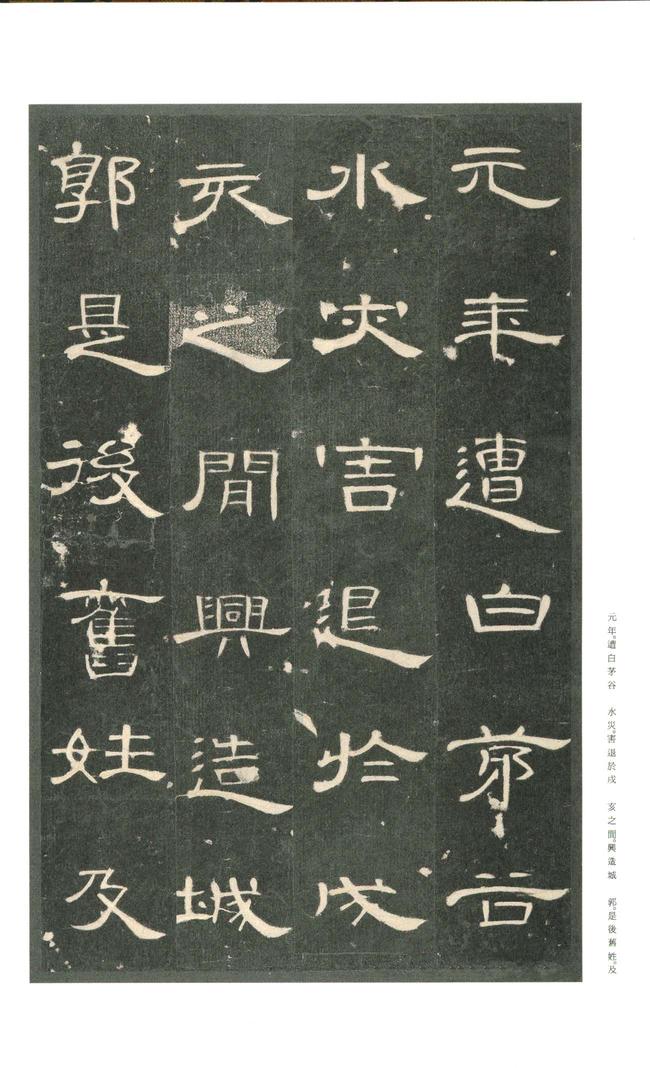 元年遭白茅谷
水災害退於戌
亥之間興造城
郭是後舊姓及
元年。遭白茅谷 水災。害退於戌 亥之間。興造城 郭。是後舊姓。及